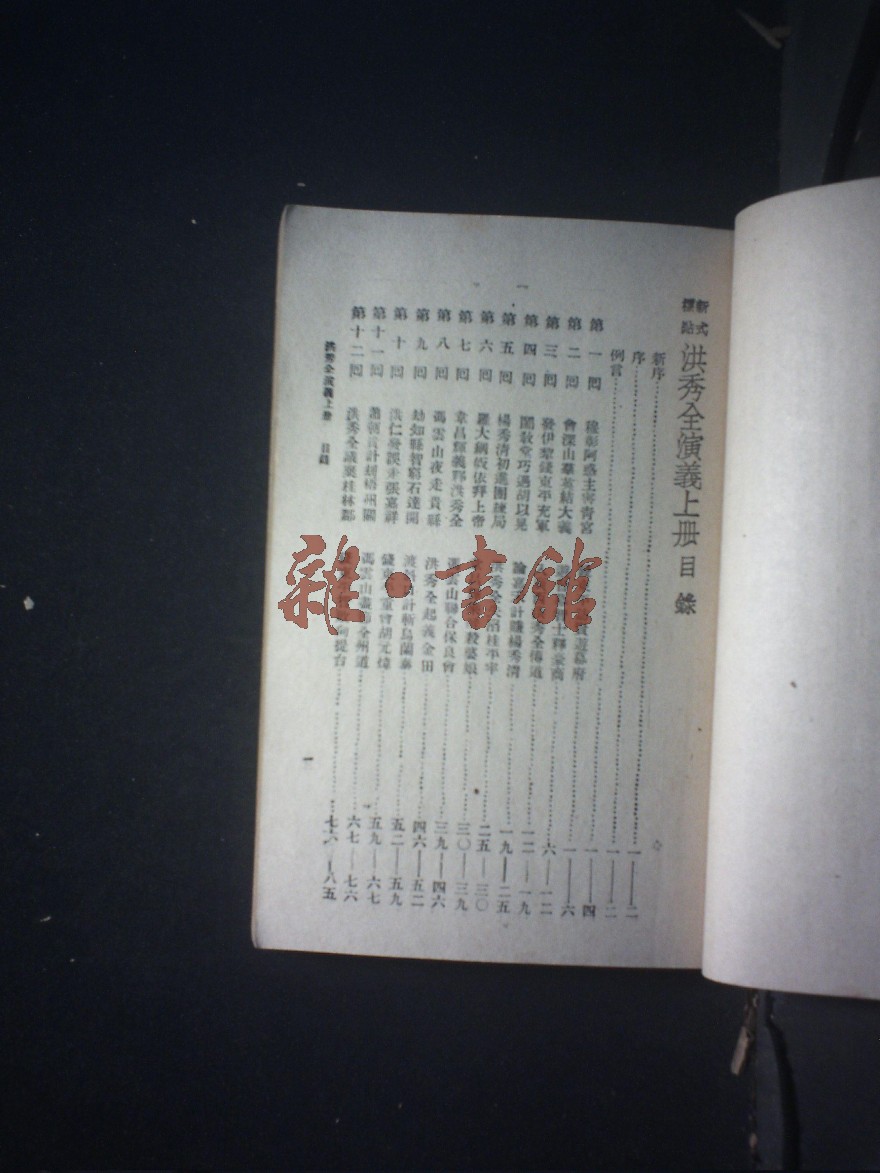 新式標點 洪秀全演義上册目錄
新序……一——二
序……一——二
例言……一——四
第一回 穆彰阿惑主害青宮 遊幕府……一——六
第二回 會深山羣英結大義 士釋豪商……六——一二
第三回 發伊犂錢東平充軍 秀全傳道……一二——一九
第四回 閙敎堂巧遇胡以晃 論嘉計賺楊秀淸……一九——二五
第五回 楊秀淸初進團練局 洪秀全桂平牢……二五——三〇
第六回 羅大綱皈依拜上帝 殺婆娘……三〇——三九
第七回 韋昌輝義釋洪秀全 馮雲山聯合保良會……三九——四六
第八回 馮雲山夜走貴縣 洪秀全起義金田……四六——五二
第九回 劫知縣智窮石達開 渡計斬烏蘭泰……五二——五九
第十回 洪仁發誤走張嘉祥 錢東平重會胡元煒……五九——六七
第十一回 蕭朝貴計刼梧州關 馮雲山盡節全州道……六七——七六
第十二回 洪秀全議棄桂林郡 向提台……七六——八五
洪秀全演義上册 目錄
一
雜·書館